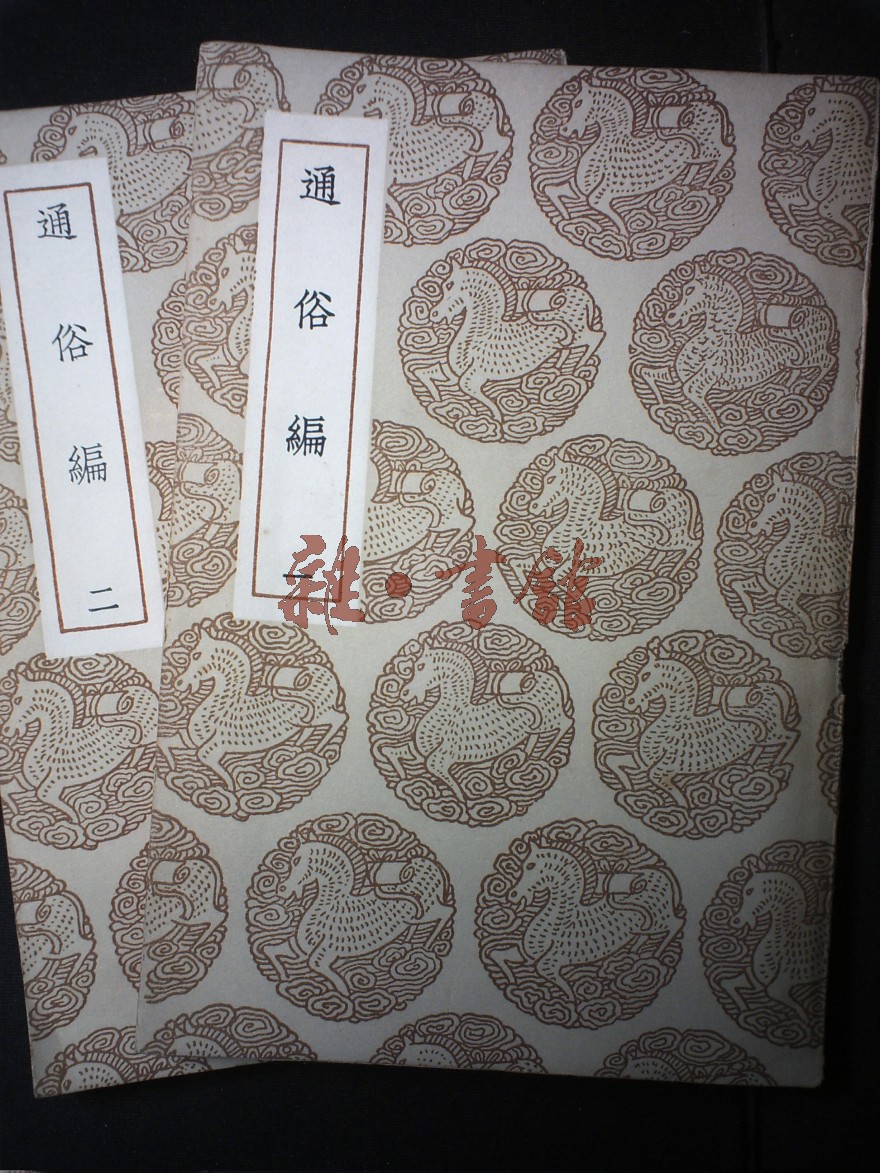 通俗編
一
通俗編
二
雜·書館